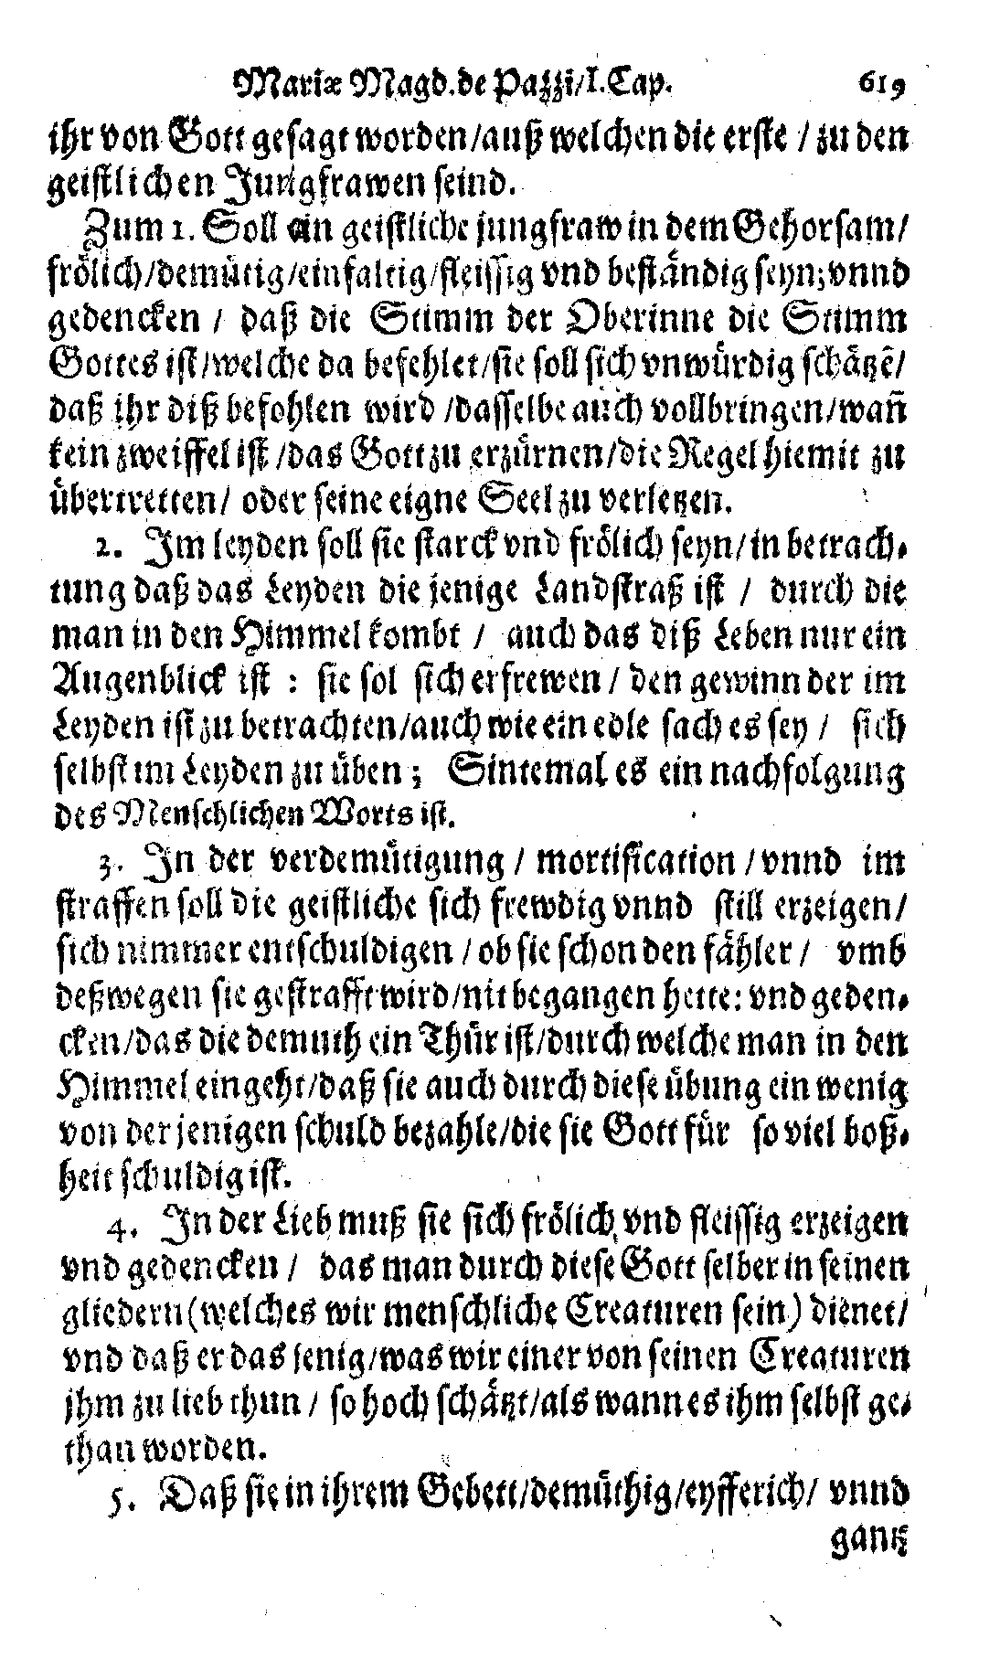 Mariæ Magd. de Pazzi/I. Cap. 619
ihr von Gott gesagt worden/auß welchen die erste / zu den
geistlichen Jungfrawen seind.
Zum 1. Soll ein geistliche jungfraw in dem Gehorsam/
frölich/demütig/einfaltig/fleissig vnd beständig seyn; vnnd
gedencken / daß die Stimm der Oberinne die Stimm
Gottes ist/welche da befehlet/sie soll sich vnwürdig schätzẽ/
daß ihr diß befohlen wird /dasselbe auch vollbringen/wañ
kein zweiffel ist /das Gott zu erzürnen/die Regel hiemit zu
übertretten/ oder seine eigne Seel zu verletzen.
2. Im leyden soll sie starck vnd frölich seyn/in betrach-
tung daß das Leyden die jenige Landstraß ist / durch die
man in den Himmel kombt / auch das diß Leben nur ein
Augenblick ist : sie sol sich erfrewen / den gewinn der im
Leyden ist zu betrachten/auch wie ein edle sach es sey / sich
selbst im Leyden zu üben ; Sintemal es ein nachfolgung
des Menschlichen Worts ist.
3. In der verdemütigung / mortification / vnnd im
straffen soll die geistliche sich frewdig vnnd still erzeigen/
sich nimmer entschuldigen / ob sie schon den fähler / vmb
deßwegen sie gestrafft wird/nit begangen hette: vnd geden-
cken/das die demuth ein Thür ist/durch welche man in den
Himmel eingeht/daß sie auch durch diese übung ein wenig
von der jenigen schuld bezahle/die sie Gott für so viel boß-
heit schuldig ist.
4. In der Lieb muß sie sich frölich vnd fleissig erzeigen
vnd gedencken / das man durch diese Gott selber in seinen
gliedern (welches wir menschliche Creaturen sein) dienet/
vnd daß er das jenig/was wir einer von seinen Creaturen
jhm zu lieb thun / so hoch schätzt/als wann es ihm selbst ge-
than worden.
5. Daß sie in ihrem Gebett/demüthig/eyfferich/ vnnd
gantz